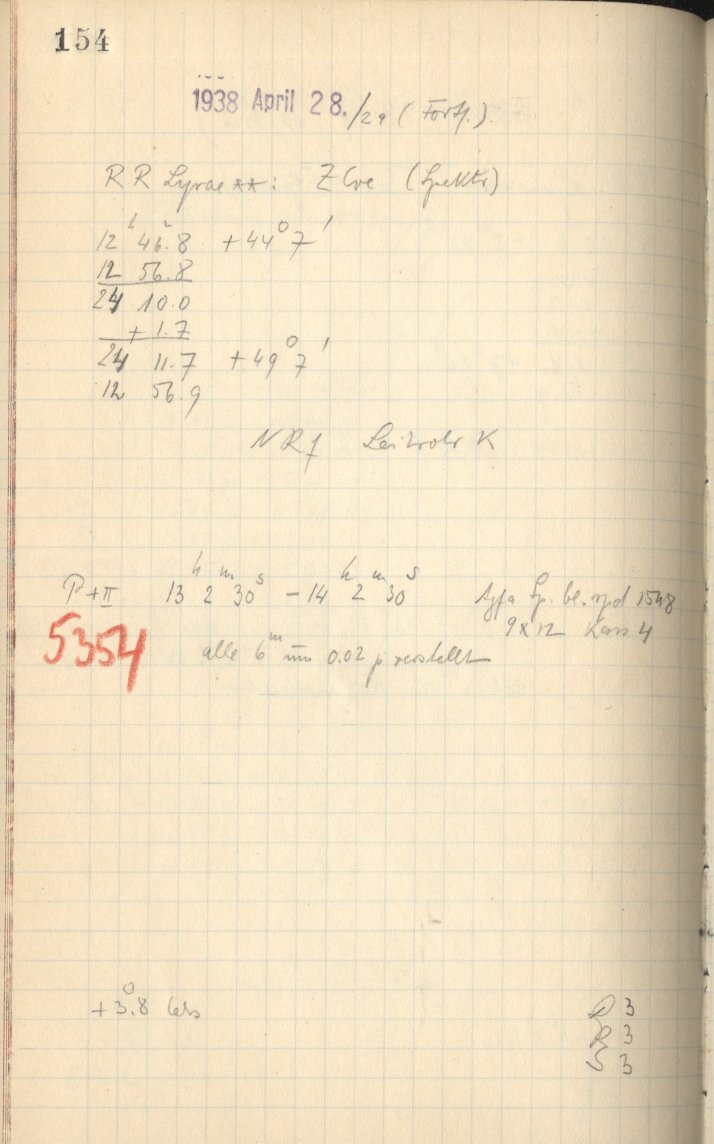 154
1938 April 28./29 (Forts.).
RR Lyrae **: Z CVe (Spektr)
12ʰ 46.8 +44° 7'
12 56.8
24 10.0
+ 1.7
24 11.7 +49° 7'
12 56.9
NRf Leitrohr K
P+II 13ʰ 2ᵐ 30ˢ – 14ʰ 2ᵐ 30ˢ Agfa Sp. bl. rpd 1548
9x12 Kass 4
5354 alle 6ᵐ um 0.02 p verstellt
+3°.8
D 3
R 3
S 3